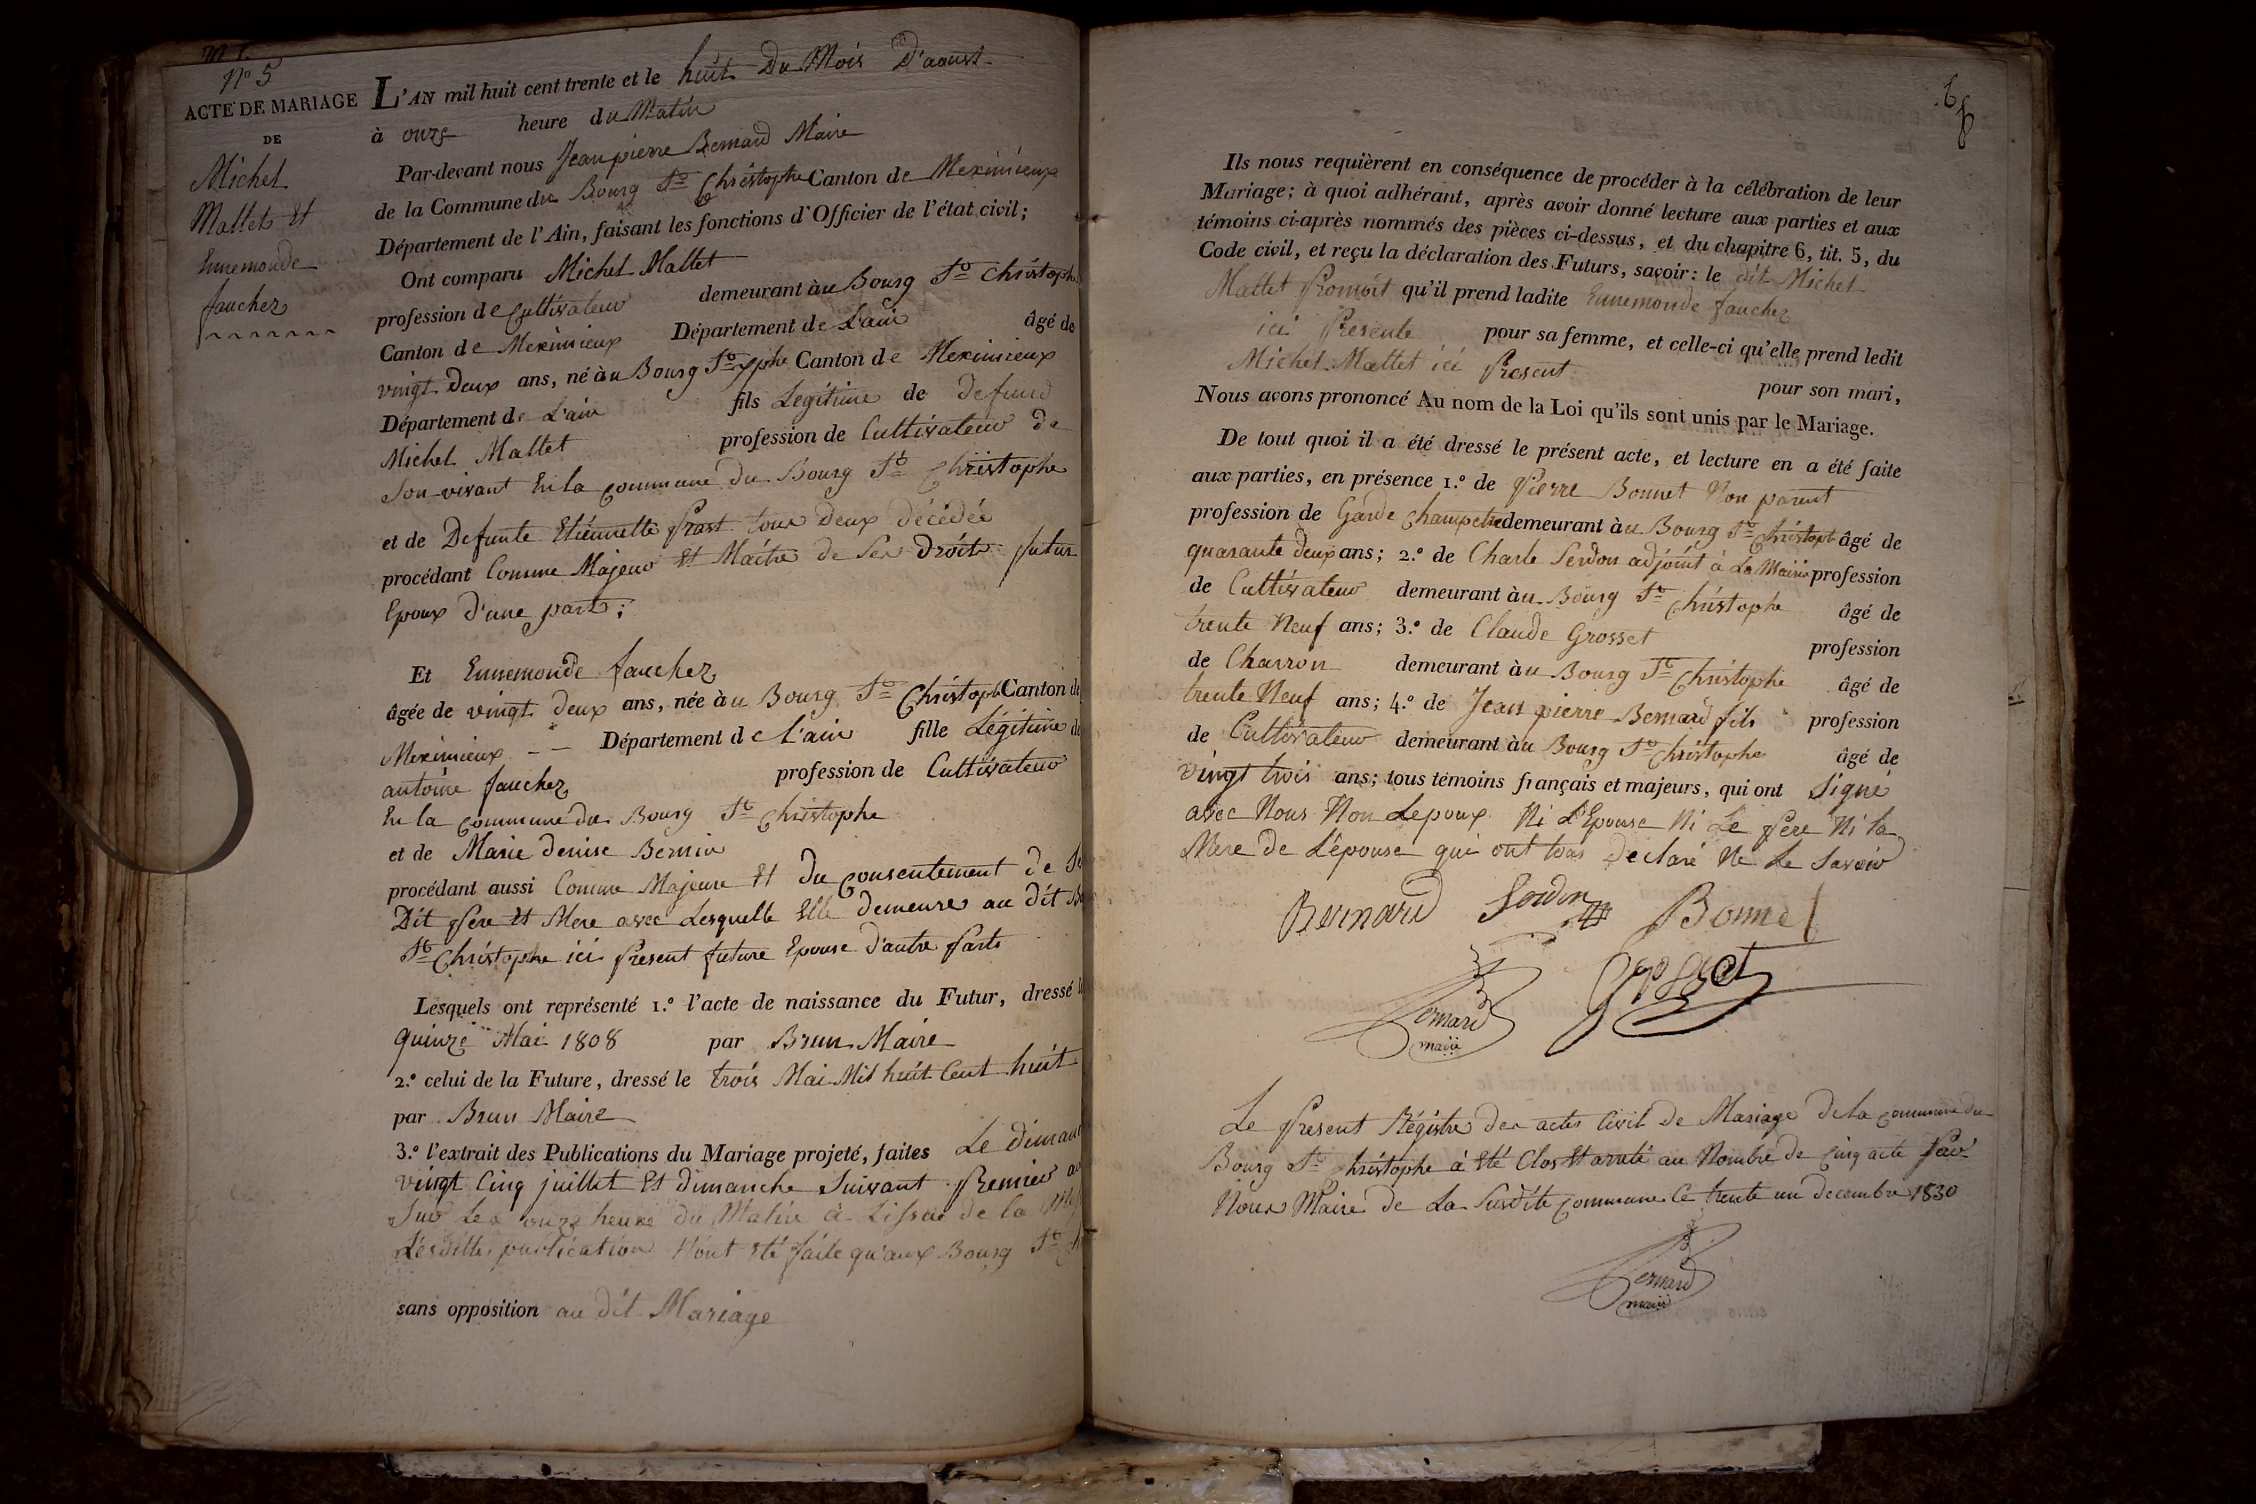 N° 5
ACTE DE MARIAGE
DE
Michel
Mallet Et
Ennemonde
faucher
L'AN mil huit cent trente et le huit Du Mois D'aoust
à onze heure du Matin
Par-devant nous Jean pierre Bernard Maire
de la Commune du Bourg St Christophe Canton de Meximieux
Département de l'Ain, faisant les fonctions d'Officier de l'état civil;
Ont comparu Michel Mallet
profession de Cultivateur demeurant àu Bourg St Christophe
Canton de Meximieux Département de L'ain âgé de
vingt Deux ans, né àu Bourg St Xphe Canton de Meximieux
Département de L'ain fils Legitime de Defund
Michel Mallet profession de Cultivateur de
Son vivant En la commune du Bourg St Christophe
et de Defunte Etiennette Prost tous Deux décédés
procédant Comme Majeur Et Maitre de Ses Droits futur
Epoux d'une part;
Et Ennemonde faucher
âgée de vingt Deux ans, née àu Bourg St Christoph Canton de
Meximieux -- Département de L'ain fille Légitime de
antoine faucher profession de Cultivateur
En la commune du Bourg St Christophe
et de Marie denise Bernin
procédant aussi Comme Majeure Et du consentement de Se
Dit Pere Et Mere avec Lesquelle Elle Demeure au dit Bo
St Christophe ici Present future Epouse d'autre Part
Lesquels ont représenté 1.° l'acte de naissance du Futur, dressé le
quinze Mai 1808 par Brun Maire
2.° celui de la Future, dressé le trois Mai Mil huit Cent huit
par Brun Maire
3.° l'extrait des Publications du Mariage projeté, faites Le dimanc
vingt Cinq juillet Et dimanche Suivant Premier ao
Sur Les onze heure du Matin à L'issue de la Mes
Lesdittes publication N'ont Eté faite qu'aux Bourg St Ch
sans opposition au dit Mariage
6
Ils nous requièrent en conséquence de procéder à la célébration de leur
Mariage; à quoi adhérant, après avoir donné lecture aux parties et aux
témoins ci-après nommés des pièces ci-dessus, et du chapitre 6, tit. 5, du
Code civil, et reçu la déclaration des Futurs, savoir: le dit Michel
Mallet Promoit qu'il prend ladite Ennemonde faucher
ici Presente pour sa femme, et celle-ci qu'elle prend ledit
Michel Mallet ici Present pour son mari,
Nous avons prononcé Au nom de la Loi qu'ils sont unis par le Mariage.
De tout quoi il a été dressé le présent acte, et lecture en a été faite
aux parties, en présence 1.° de Pierre Bonnet Non parent
profession de Garde champetre demeurant àu Bourg St Christoph âgé de
quarante deux ans; 2.° de Charle Serdon adjoint à La Mairie profession
de Cultivateur demeurant àu Bourg St Christophe âgé de
trente Neuf ans; 3.° de Claude Grosset profession
de Charron demeurant àu Bourg St Christophe âgé de
trente Neuf ans; 4.° de Jean pierre Bernard fils profession
de Cultivateur demeurant àu Bourg St Christophe âgé de
vingt trois ans; tous témoins français et majeurs, qui ont Signé
avec Nous Non Lepoux Ni L'Epouse Ni Le Pere Ni la
Mere de L'épouse qui ont tous Declaré Ne Le Savoir
Bernard Serdon Bonnet
Bernard
maire
Grosset
Le Present Régistre des actes Civil de Mariage De la commune du
Bourg St Christophe à Eté Clos Et arreté au Nombre de Cinq acte Par
Nous Maire de La Susdite commune Ce trente un decembre 1830
Bernard
maire